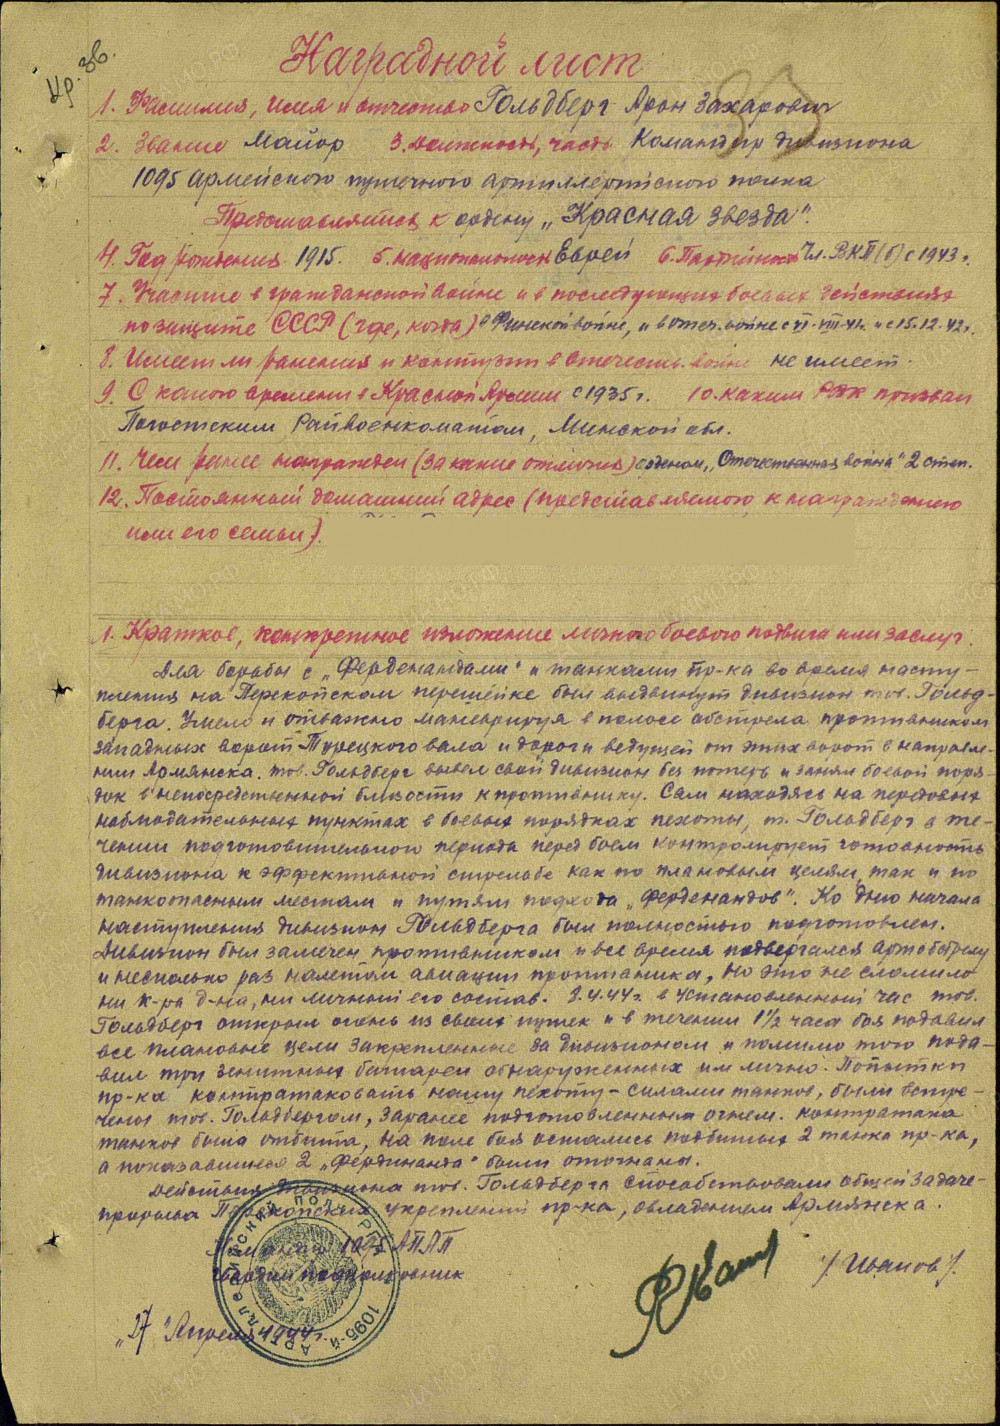 Кр. Зв.
33
Наградной лист
1. Фамилия, имя и отчество Гольдберг Арон Захарович
2. Звание Майор 3. Должность, часть Командир дивизиона
1095 армейского пушечного артиллерийского полка
Представляется к ордену „Красная звезда".
4. Год рождения 1915. 5. национальность Еврей 6. Партийность Чл. ВКП(б) с 1943 г.
7. Участие в гражданской войне и в последующих боевых действиях
по защите СССР (где, когда) в Финской войне, и в отеч. войне с VI-VIII-41г. и с 15.12.42г.
8. Имеет ли ранения и контузии в отечеств. войне не имеет.
9. С какого времени в Красной Армии с 1935 г. 10. каким РВК призван
Погостским Райвоенкоматом, Минской обл.
11. Чем ранее награжден (за какие отличия) орденом „Отечественная война" 2 степ.
12. Постоянный домашний адрес (представляемого к награждению
или его семьи).
1. Краткое, конкретное изложение личного боевого подвига или заслуг.
Для борьбы с „Ферденандами" и танками пр-ка во время насту-
пления на Перекопском перешейке был выдвинут дивизион тов. Гольд-
берга. Умело и отважно маневрируя в полосе обстрела противником
западных ворот Турецкого вала и дороги ведущей от этих ворот в направле-
нии Армянска. тов. Гольдберг вывел свой дивизион без потерь и занял боевой поря-
док в непосредственной близости к противнику. Сам находясь на передовых
наблюдательных пунктах в боевых порядках пехоты, т. Гольдберг в те-
чении подготовительного периода перед боем контролирует готовность
дивизиона к эффективной стрельбе как по плановым целям, так и по
танкоопасным местам и путям подхода „Ферденандов". Ко дню начала
наступления дивизион Гольдберга был полностью подготовлен.
Дивизион был замечен противником и все время подвергался артобстрелу
и несколько раз налетам авиации противника, но это не сломило
ни к-ра д-на, ни личный его состав. 8.4.44г. в установленный час тов.
Гольдберг открыл огонь из своих пушек и в течении 1½ часа боя подавил
все плановые цели закрепленные за дивизионом и помимо того пода-
вил три зенитных батареи обнаруженных им лично. Попытки
пр-ка контратаковать нашу пехоту - силами танков, были встре-
чены тов. Гольдбергом, заранее подготовленным огнем. контратака
танков была отбита, на поле боя остались подбитых 2 танка пр-ка,
а показавшиеся 2 „Фердинанда" были отогнаны.
Действия дивизиона тов. Гольдберга способствовали общей задаче-
прорыва Перекопских укреплений пр-ка, овладением Армянска.
Командир 1095 АПАП
Гвардии подполковник
/Иванов/.
„27" Апреля 1944 г.